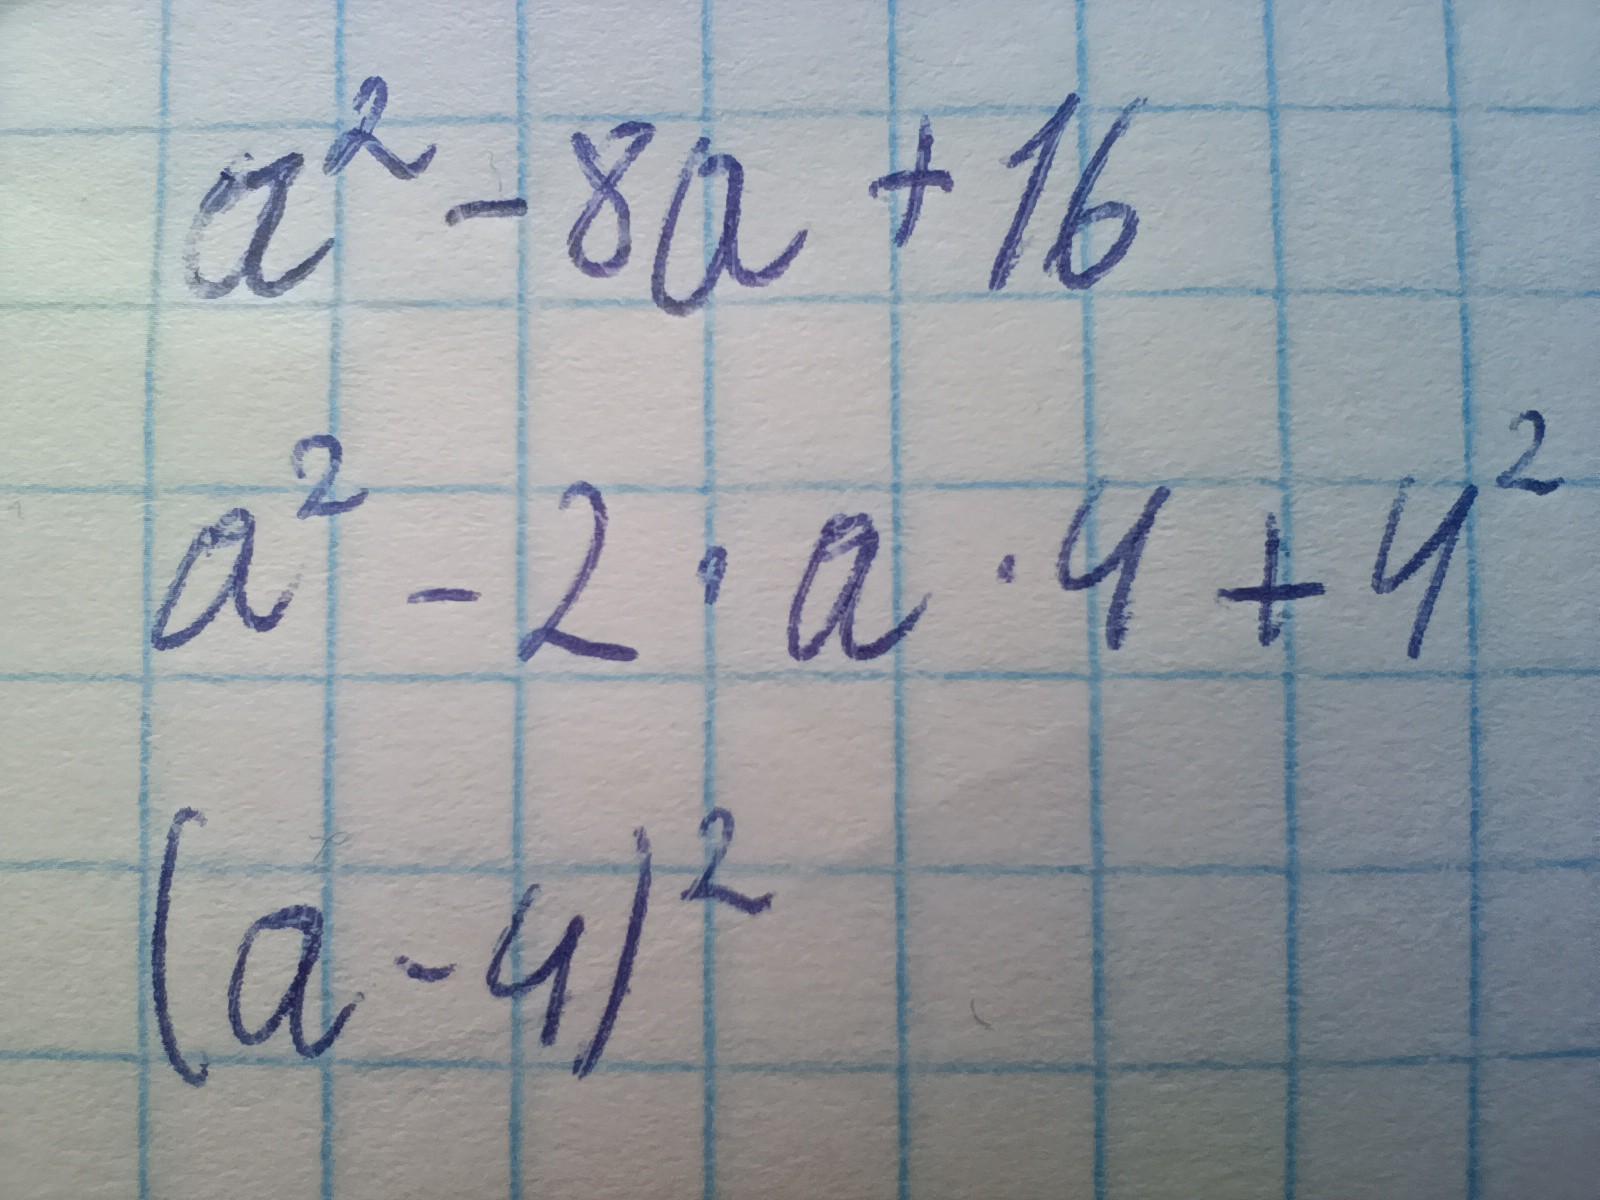 a² - 8a + 16
a² - 2 · a · 4 + 4²
(a - 4)²